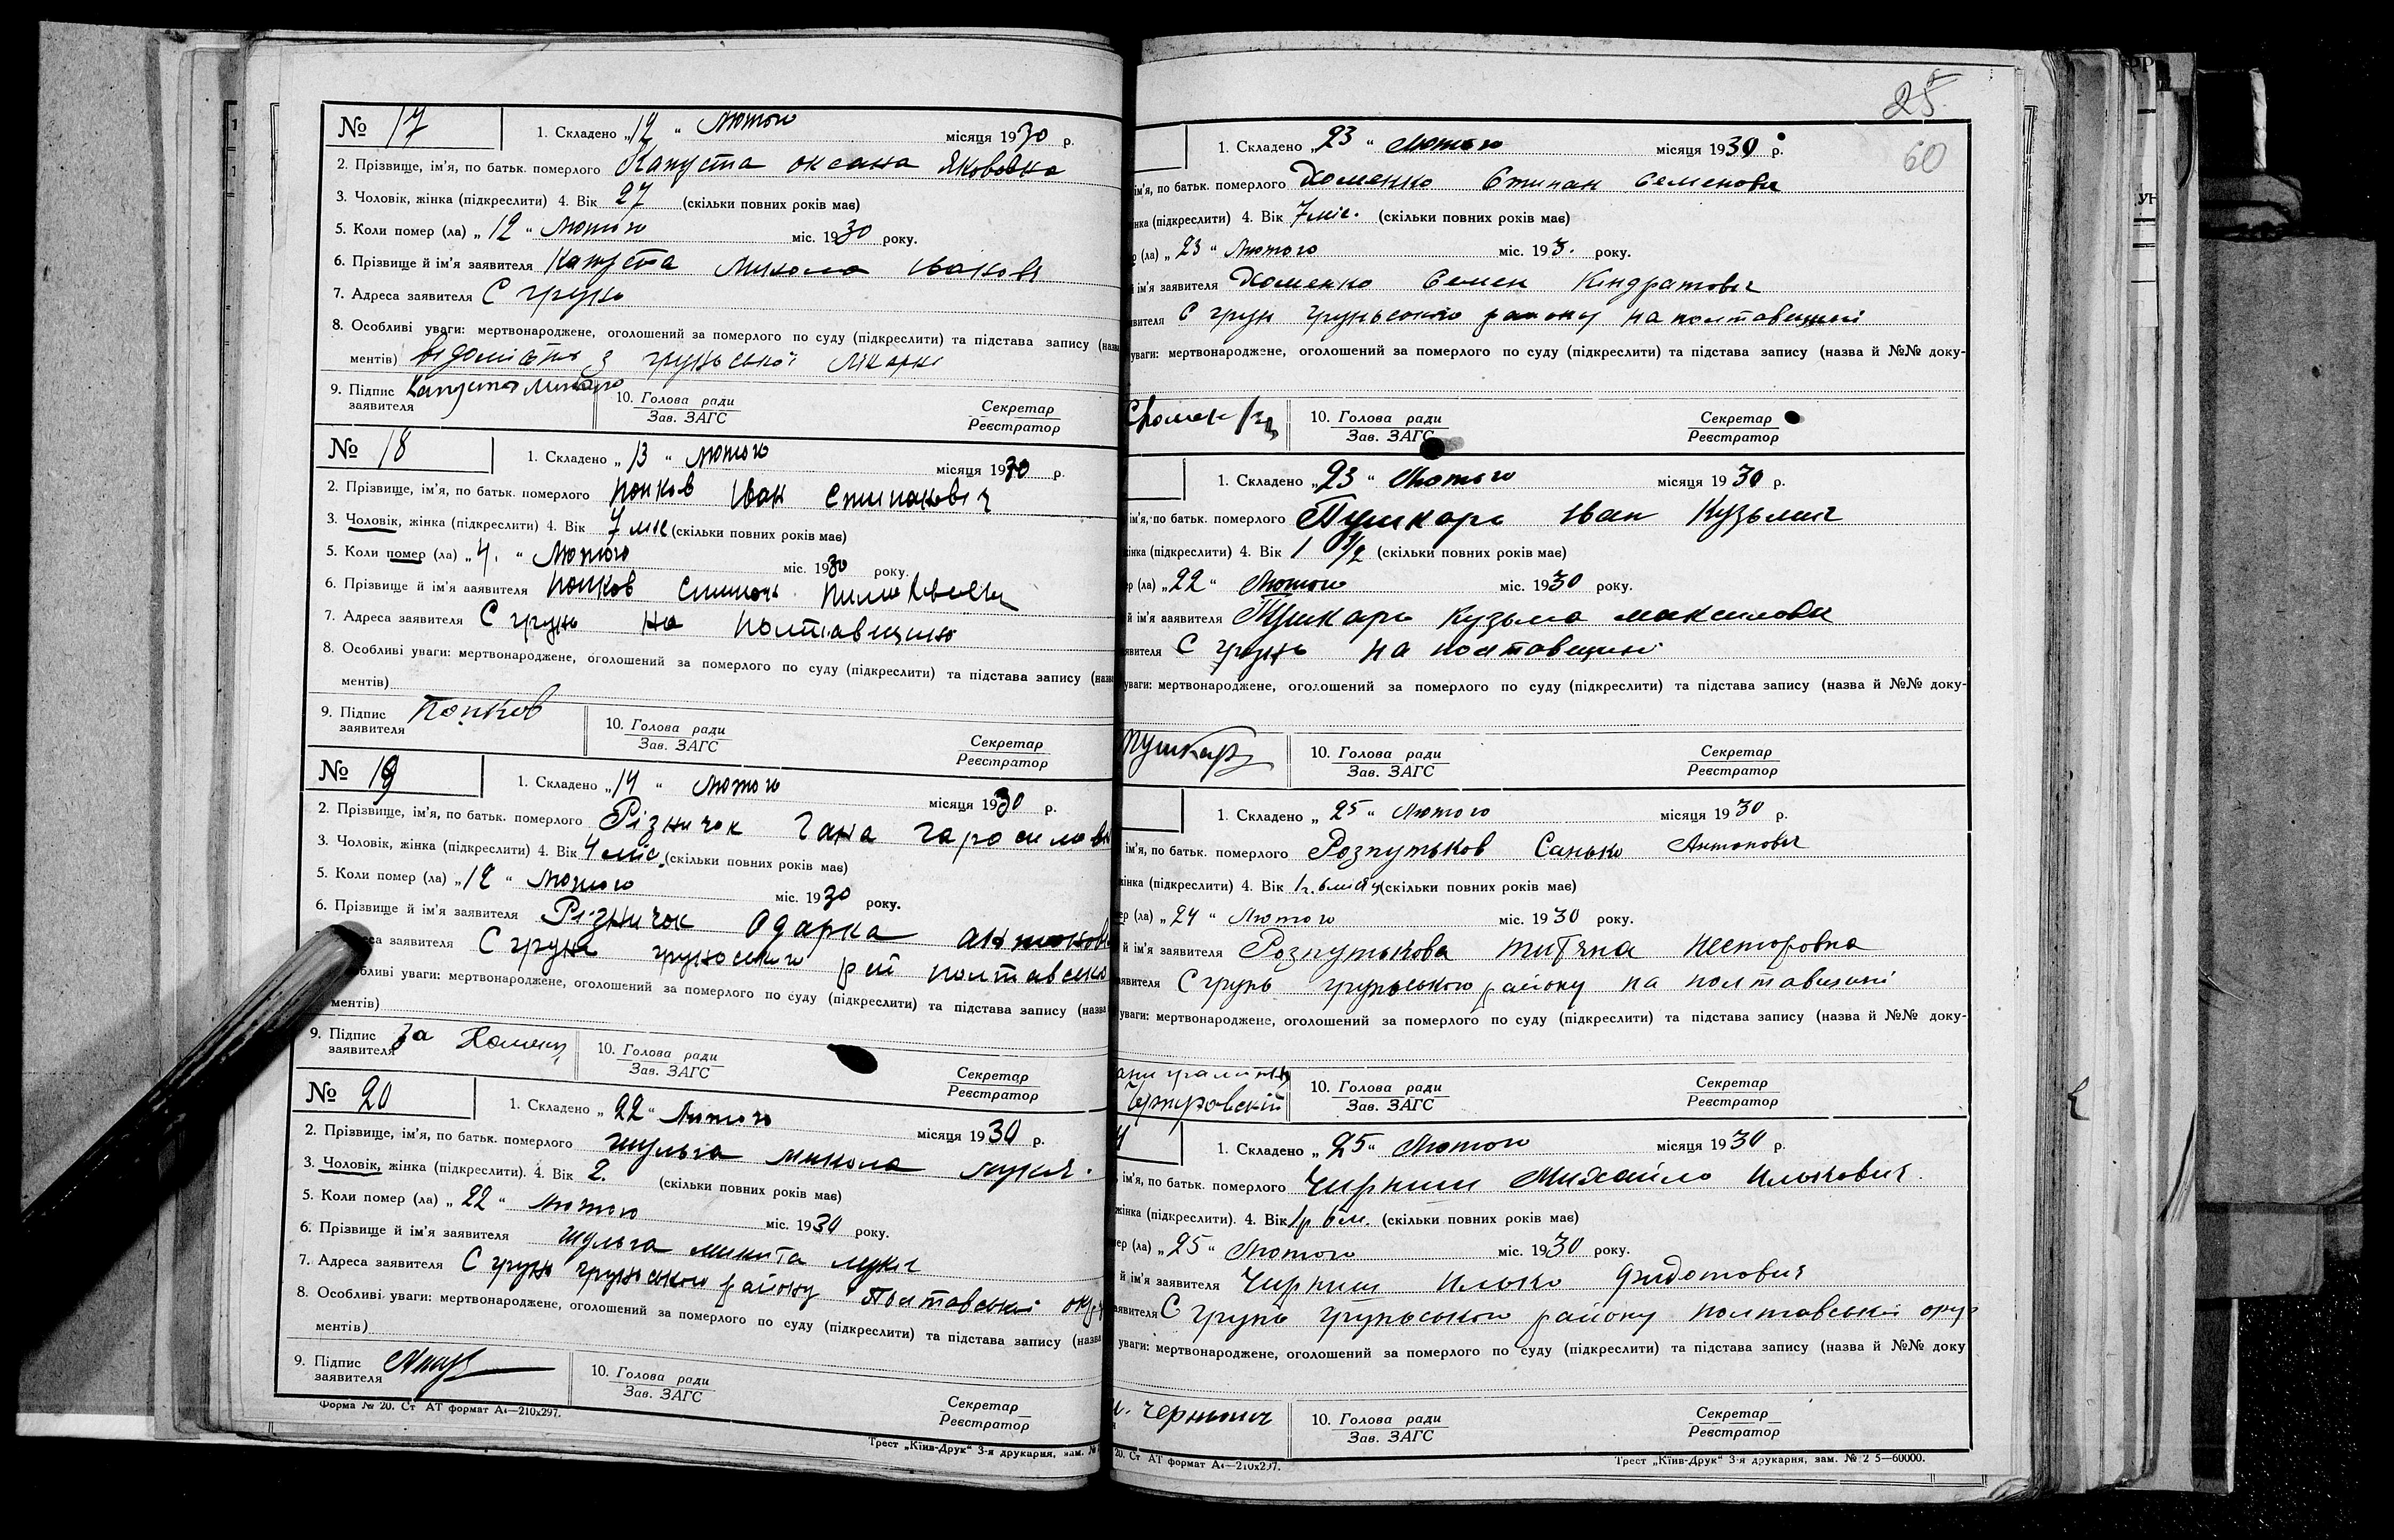 № 17
1. Складено „12 “ Лютого місяця 1930 р.
2. Прізвище, ім'я, по батьк. померлого Капуста Оксана Яковівна
3. Чоловік, жінка (підкреслити) 4. Вік 27 (скільки повних років має)
5. Коли помер (ла) „ 12 “ Лютого міс. 1930 року.
6. Прізвище й ім'я заявителя Капуста Микола Іванові
7. Адреса заявителя С грунь
8. Особливі уваги: мертвонароджене, оголошений за померлого по суду (підкреслити) та підстава запису (назва
ментів) відомість з груньської лікарні
9. Підпис заявителя Капуста Микола
10. Голова ради
Зав. ЗАГС
Секретар
Реєстратор
№ 18
1. Складено „ 13 “ Лютого місяця 1930 р.
2. Прізвище, ім'я, по батьк. померлого Попков Іван Стипанович
3. Чоловік, жінка (підкреслити) 4. Вік 7 міс (скільки повних років має)
5. Коли помер (ла) „ 4. “ Лютого міс. 1930 року.
6. Прізвище й ім'я заявителя Попков
7. Адреса заявителя С грунь на Полтавщині
8. Особливі уваги: мертвонароджене, оголошений за померлого по суду (підкреслити) та підстава запису (назва
ментів)
9. Підпис заявителя Попков
10. Голова ради
Зав. ЗАГС
Секретар
Реєстратор
№ 19
1. Складено „14 “ Лютого місяця 1930 р.
2. Прізвище, ім'я, по батьк. померлого Різничок Гана Гарасимовн
3. Чоловік, жінка (підкреслити) 4. Вік 4 міс. (скільки повних років має)
5. Коли помер (ла) „12 “ Лютого міс. 1930 року.
6. Прізвище й ім'я заявителя Різничок Одарка Антонов
са заявителя С грунь груньського рай полтавсько
бливі уваги: мертвонароджене, оголошений за померлого по суду (підкреслити) та підстава запису (назва
ментів)
9. Підпис заявителя За
10. Голова ради
Зав. ЗАГС
Секретар
Реєстратор
№ 20
1. Складено „ 22 “ Лютого місяця 1930 р.
2. Прізвище, ім'я, по батьк. померлого Шульга Микола Лукич.
3. Чоловік, жінка (підкреслити). 4. Вік 2. (скільки повних років має)
5. Коли помер (ла) „ 22 “ Лютого міс. 1930 року.
6. Прізвище й ім'я заявителя Шульга Микита Лукич
7. Адреса заявителя С грунь груньського району Полтавської окр
8. Особливі уваги: мертвонароджене, оголошений за померлого по суду (підкреслити) та підстава запису (назва
ментів)
9. Підпис заявителя
10. Голова ради
Зав. ЗАГС
Секретар
Реєстратор
Форма № 20. Ст АТ формат А4—210х297.
Трест „Київ-Друк“ 3-я друкарня, зам. №
25
60
1. Складено „23 “ Лютого місяця 1930 р.
ім'я, по батьк. померлого Хоменко Стипан Семенович
інка (підкреслити) 4. Вік 7 міс. (скільки повних років має)
р (ла) „ 23 “ Лютого міс. 193. року.
й ім'я заявителя Хоменко Семен Кіндратович
явителя С грун груньського району на полтавщині
уваги: мертвонароджене, оголошений за померлого по суду (підкреслити) та підстава запису (назва й №№ доку-
10. Голова ради
Зав. ЗАГС
Секретар
Реєстратор
1. Складено „23 “ Лютого місяця 1930 р.
ім'я, по батьк. померлого Пушкарь Іван Кузьмич
жінка (підкреслити) 4. Вік 1 1/2 (скільки повних років має)
ер (ла) „22 “ Лютого міс. 1930 року.
й ім'я заявителя Пушкарь Кузьма Максимович
явителя С грунь на полтавщині
уваги: мертвонароджене, оголошений за померлого по суду (підкреслити) та підстава запису (назва й №№ доку-
Пушкарь
10. Голова ради
Зав. ЗАГС
Секретар
Реєстратор
1. Складено „ 25 “ Лютого місяця 1930 р.
ім'я, по батьк. померлого Розпутьков Санько Антонович
жінка (підкреслити) 4. Вік 1 г. 6 місяц (скільки повних років має)
ер (ла) „ 24 “ Лютого міс. 1930 року.
й ім'я заявителя Розпутькова Титяна Несторовна
явителя С грунь груньського району на полтавщині
уваги: мертвонароджене, оголошений за померлого по суду (підкреслити) та підстава запису (назва й №№ доку-
10. Голова ради
Зав. ЗАГС
Секретар
Реєстратор
1. Складено „ 25 “ Лютого місяця 1930 р.
ім'я, по батьк. померлого Чирниш Михайло Илькович.
жінка (підкреслити). 4. Вік 1 р 6 м. (скільки повних років має)
ер (ла) „ 25 “ Лютого міс. 1930 року.
й ім'я заявителя Чирниш Илько Фидотович
аявителя С грунь груньського району полтавської окр
уваги: мертвонароджене, оголошений за померлого по суду (підкреслити) та підстава запису (назва й №№ доку
10. Голова ради
Зав. ЗАГС
Секретар
Реєстратор
20. Ст АТ формат А4—210х297.
Трест „Київ-Друк“ 3-я друкарня, зам. № 2 5—60000.